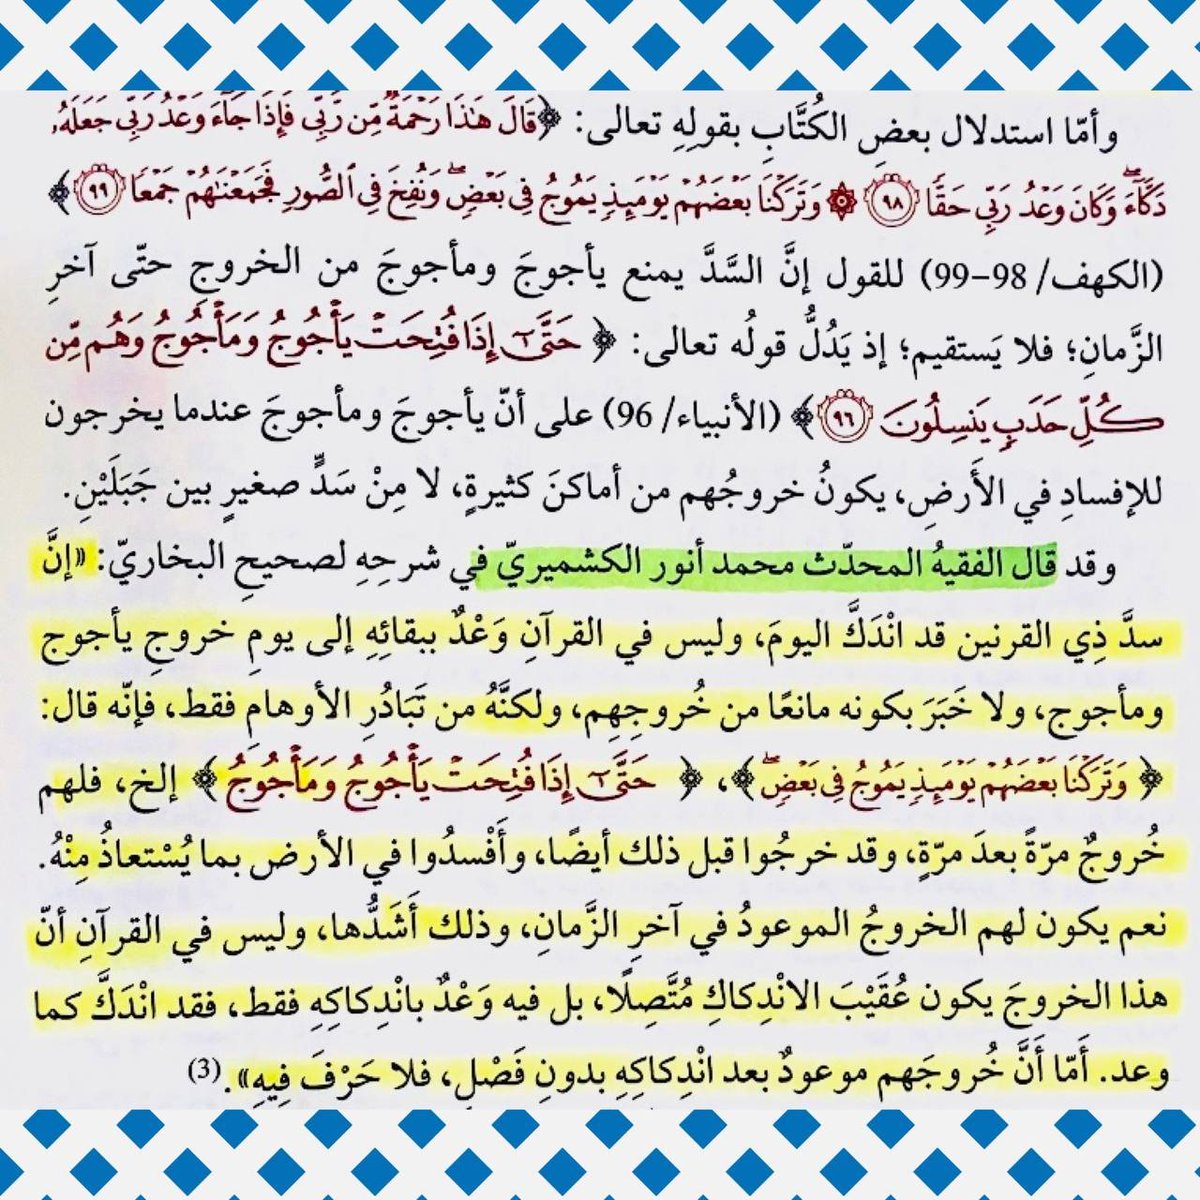 وأمّا استدلال بعضِ الكُتَّابِ بقولِهِ تعالى: ﴿قَالَ هَٰذَا رَحْمَةٌ مِّن رَّبِّي فَإِذَا جَآءَ وَعْدُ رَبِّي جَعَلَهُۥ
دَكَّآءَۖ وَكَانَ وَعْدُ رَبِّي حَقًّا ٩٨ ۞ وَتَرَكْنَا بَعْضَهُمْ يَوْمَئِذٍ يَمُوجُ فِي بَعْضٖۖ وَنُفِخَ فِي ٱلصُّورِ فَجَمَعْنَٰهُمْ جَمْعًا ٩٩﴾
(الكهف/ 98–99) للقول إنَّ السَّدَّ يمنع يأجوجَ ومأجوجَ من الخروجِ حتّى آخرِ
الزَّمانِ؛ فلا يَستقيم؛ إذ يَدُلُّ قولُه تعالى: ﴿حَتَّىٰٓ إِذَا فُتِحَتْ يَأْجُوجُ وَمَأْجُوجُ وَهُم مِّن
كُلِّ حَدَبٍ يَنسِلُونَ ٩٦﴾ (الأنبياء/ 96) على أنّ يأجوجَ ومأجوجَ عندما يخرجون
للإفسادِ في الأَرضِ، يكونُ خروجُهم من أماكنَ كثيرةٍ، لا مِنْ سَدٍّ صغيرٍ بين جَبَلَيْنِ.
وقد قال الفقيهُ المحدّث محمد أنور الكشميريّ في شرحِهِ لصحيحِ البخاريّ: «إنَّ
سدَّ ذِي القرنين قد انْدَكَّ اليومَ، وليس في القرآنِ وَعْدٌ ببقائِهِ إلى يومِ خروجِ يأجوج
ومأجوج، ولا خَبَرَ بكونه مانعًا من خُروجِهِم، ولكنَّهُ من تَبَادُرِ الأوهامِ فقط، فإنّه قال:
﴿وَتَرَكْنَا بَعْضَهُمْ يَوْمَئِذٍ يَمُوجُ فِي بَعْضٖۖ﴾، ﴿حَتَّىٰٓ إِذَا فُتِحَتْ يَأْجُوجُ وَمَأْجُوجُ﴾ إلخ، فلهم
خُروجٌ مرّةً بعدَ مرّةٍ، وقد خرجُوا قبل ذلك أيضًا، وأَفْسدُوا في الأرض بما يُسْتعاذُ مِنْهُ.
نعم يكون لهم الخروجُ الموعودُ في آخرِ الزَّمانِ، وذلك أَشَدُّها، وليس في القرآنِ أنّ
هذا الخروجَ يكون عُقَيْبَ الانْدِكاكِ مُتَّصِلًا، بل فيه وَعْدٌ بانْدِكاكِهِ فقط، فقد انْدَكَّ كما
وعد. أَمّا أَنَّ خُروجَهم موعودٌ بعد انْدِكاكِهِ بدونِ فَصْلٍ، فلا حَرْفَ فِيهِ».(3)